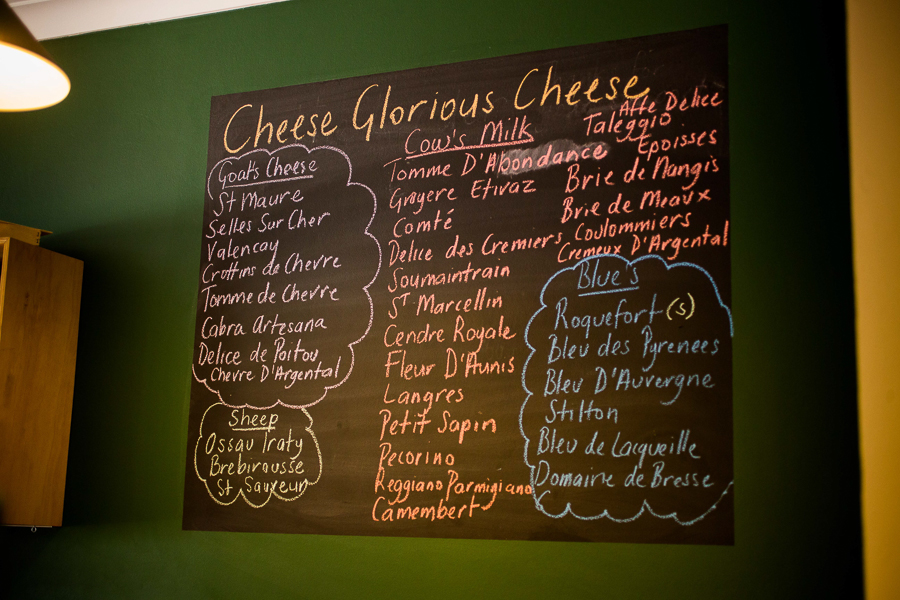 Cheese Glorious Cheese
Goat's Cheese
St Maure
Selles Sur Cher
Valencay
Crottins de Chevre
Tomme de Chevre
Cabra Artesana
Delice de Poitou
Chevre D'Argental
Sheep
Ossau Iraty
Brebirousse
St Sauveur
Cow's Milk
Tomme D'Abondance
Gruyere Etivaz
Comté
Delice des Cremiers
Soumaintrain
St Marcellin
Cendre Royale
Fleur D'Aunis
Langres
Petit Sapin
Pecorino
Reggiano Parmigiano
Camembert
Affe Delice
Taleggio
Epoisses
Brie de Nangis
Brie de Meaux
Coulommiers
Cremeux D'Argental
Blue's
Roquefort (s)
Bleu des Pyrenees
Bleu D'Auvergne
Stilton
Bleu de Laqueille
Domaine de Bresse